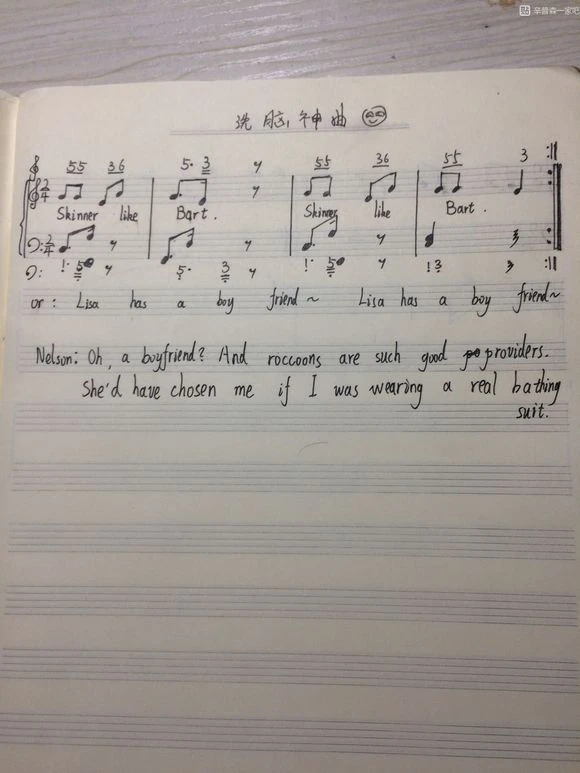 辛普森一家吧
洗脑神曲
55 36 5· 3 55 36 55 3
2/4
Skinner like Bart. Skinner like Bart.
2/4
1· 5 5· 3 1· 5 1 3
or: Lisa has a boy friend~ Lisa has a boy friend~
Nelson: Oh, a boyfriend? And roccoons are such good providers.
She'd have chosen me if I was wearing a real bathing
suit.